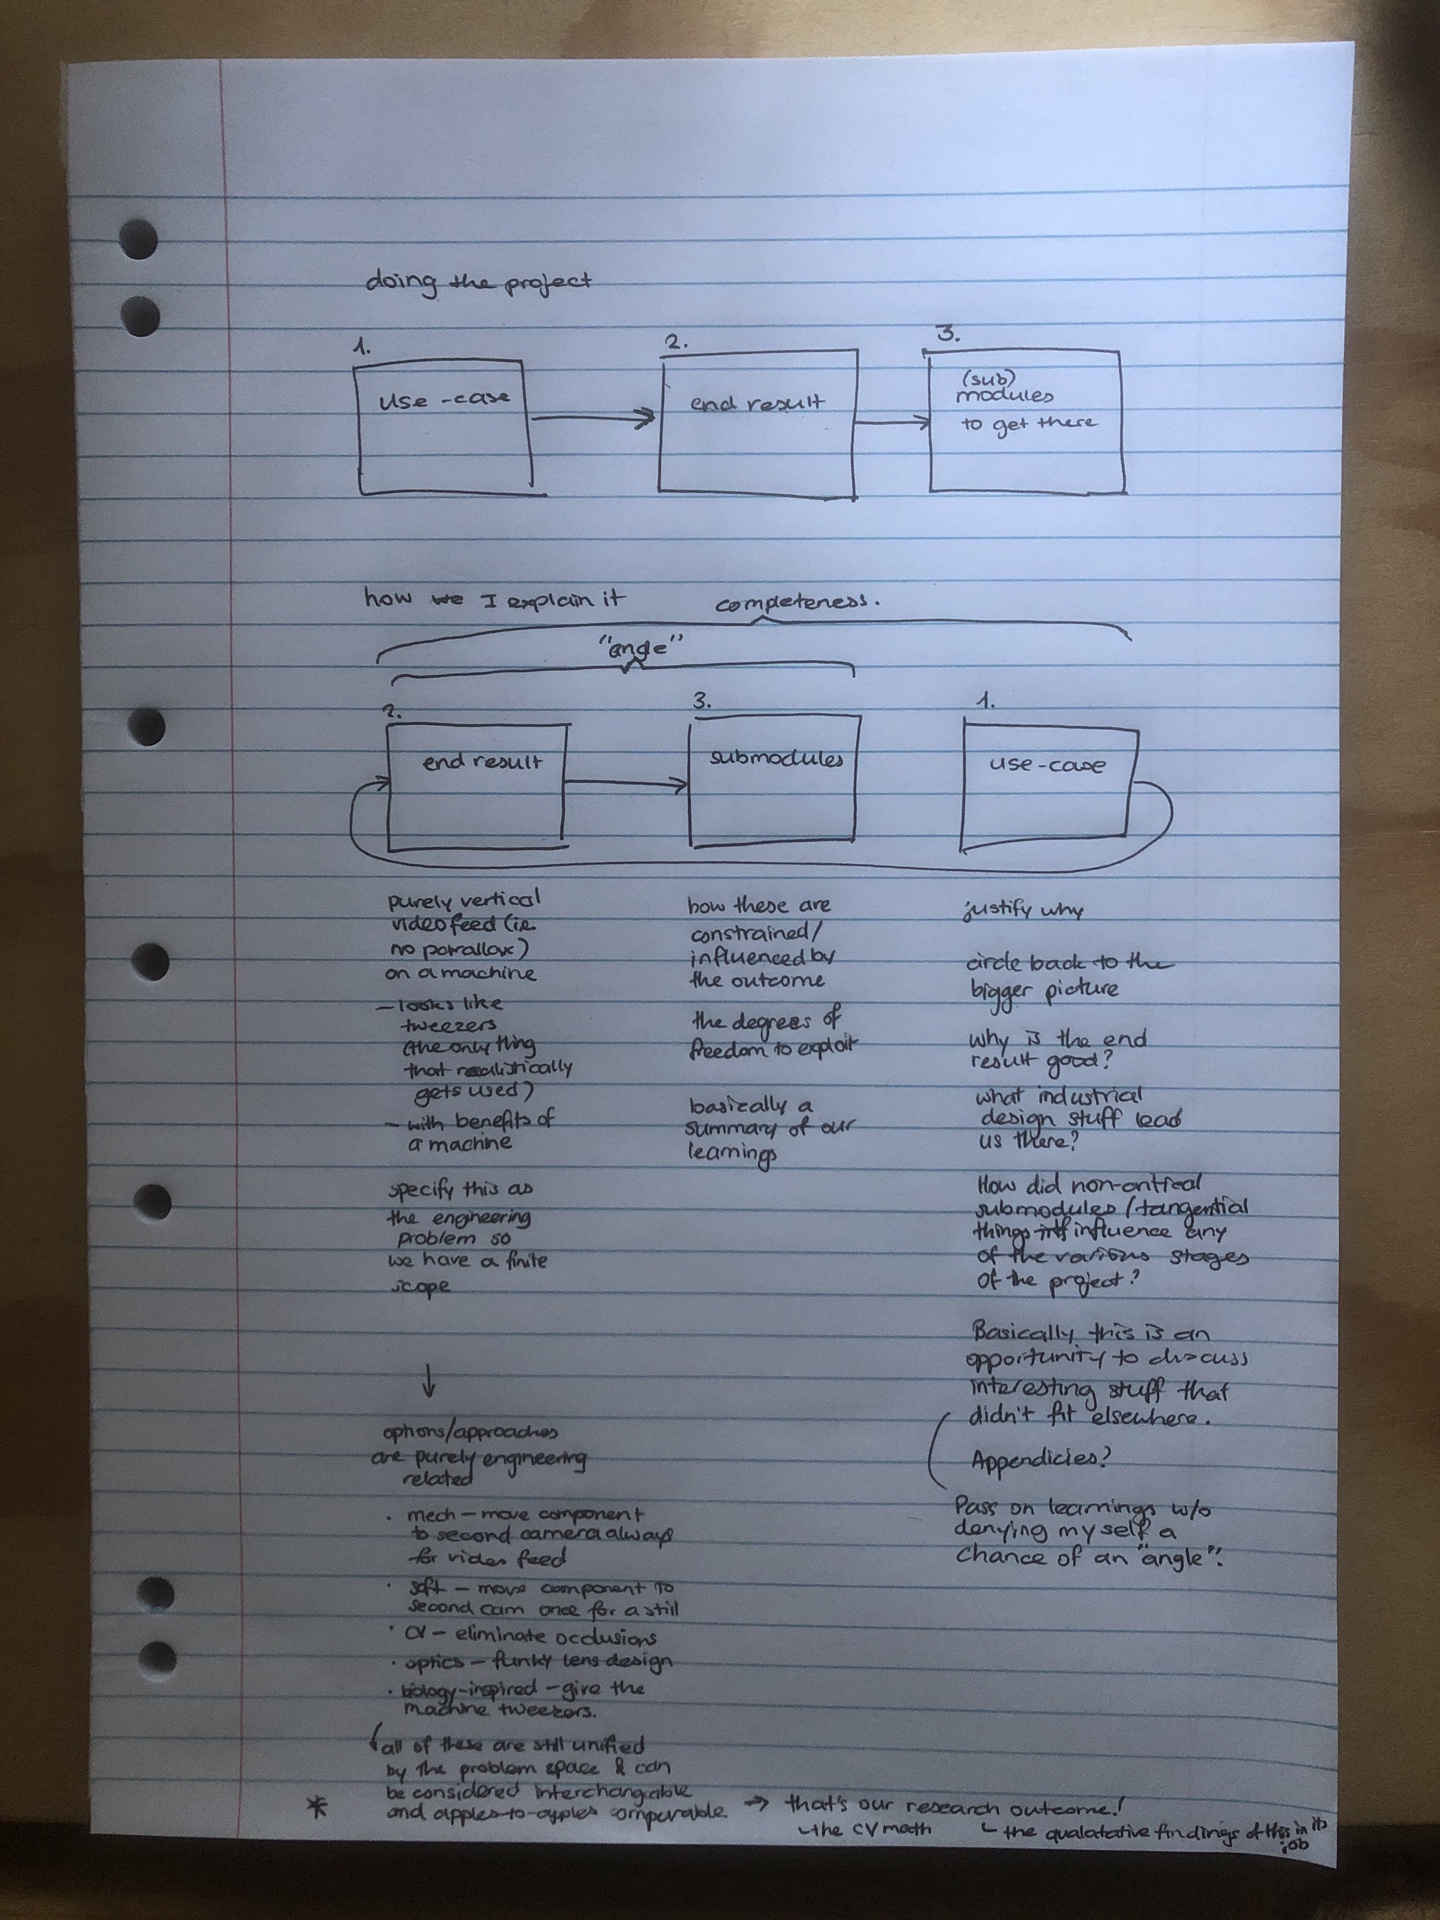 doing the project
1.
use-case
2.
end result
3.
(sub)
modules
to get there
how we I explain it
completeness.
"angle"
2.
end result
3.
submodules
1.
use-case
purely vertical
video feed (i.e.
no parrallax)
on a machine
- looks like
tweezers
(the only thing
that realistically
gets used)
- with benefits of
a machine
specify this as
the engineering
problem so
we have a finite
scope
↓
options/approaches
are purely engineering
related
· mech - move component
to second camera always
for video feed
· soft - move component to
second cam once for a still
· CV - eliminate occlusions
· optics - funky lens design
· biology-inspired - give the
machine tweezers.
all of these are still unified
by the problem space & can
be considered interchangable
* and apples-to-apples comparable → that's our research outcome!
the CV math
the qualatative findings of this in its
job
how these are
constrained/
influenced by
the outcome
the degrees of
freedom to exploit
basically a
summary of our
learnings
justify why
circle back to the
bigger picture
why is the end
result good?
what industrial
design stuff lead
us there?
How did non-critical
submodules/tangential
things influence any
of the various stages
of the project?
Basically this is an
opportunity to discuss
interesting stuff that
didn't fit elsewhere.
Appendicies?
Pass on learnings w/o
denying myself a
chance of an "angle".